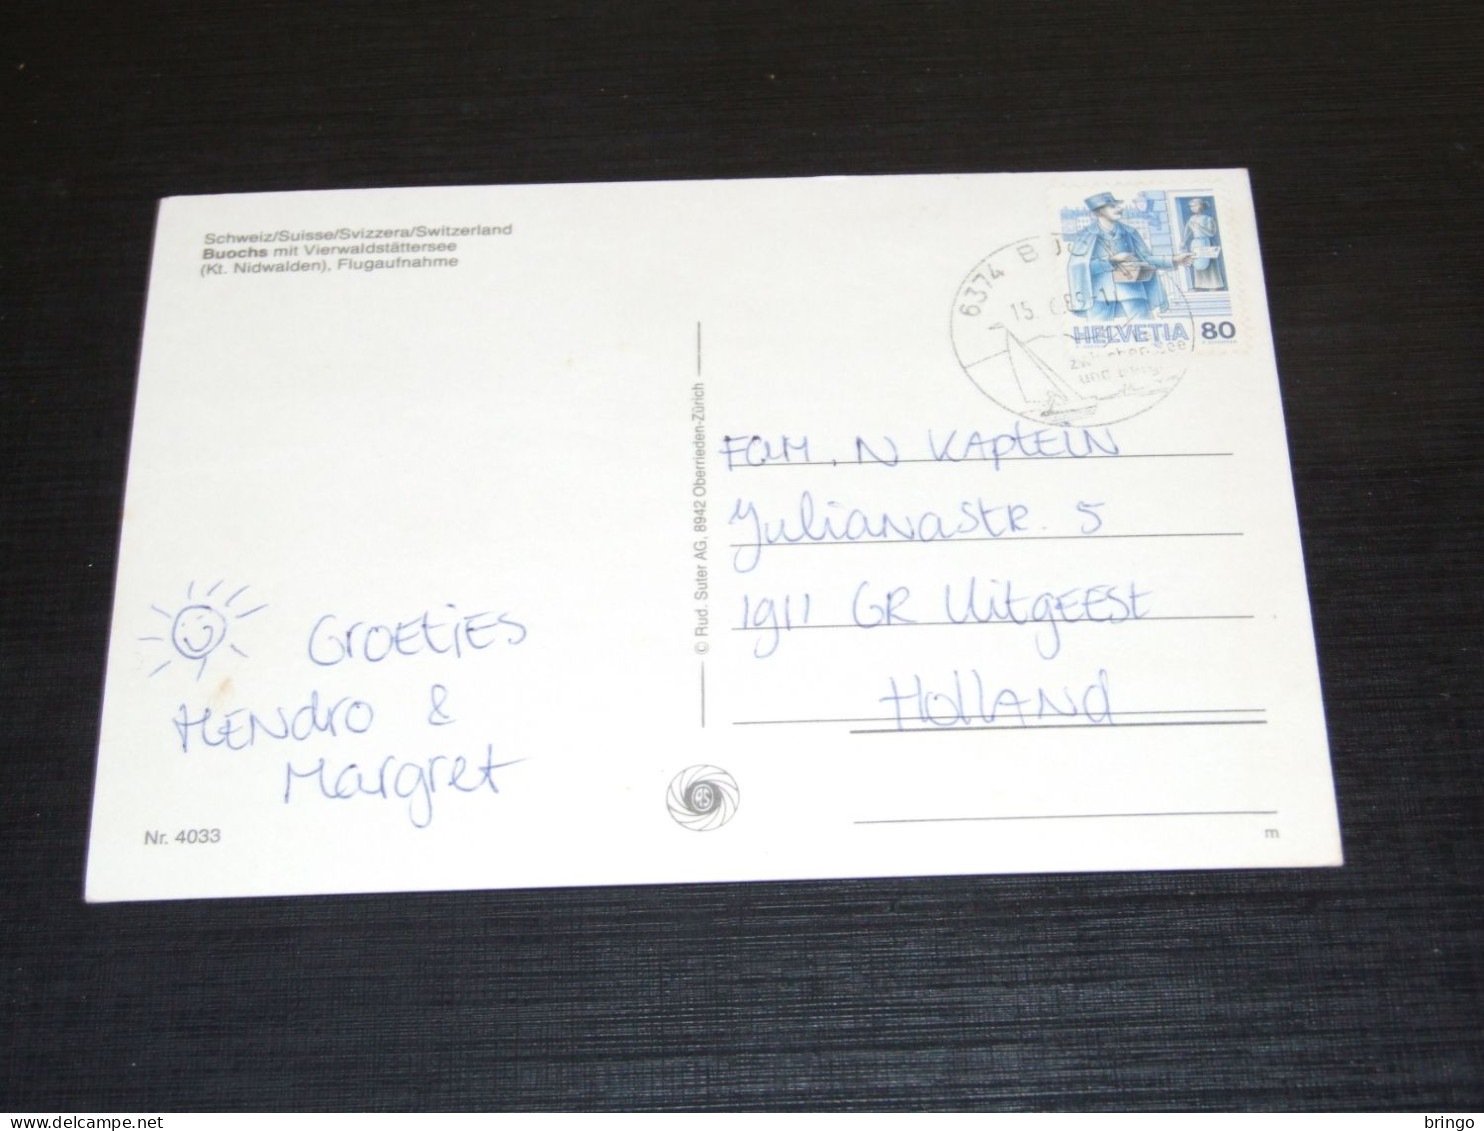 Schweiz/Suisse/Svizzera/Switzerland
Buochs mit Vierwaldstättersee
(Kt. Nidwalden), Flugaufnahme
6374
15.
zwischen See
und
HELVETIA 80
© Rud. Suter AG, 8942 Oberrieden-Zürich
Fam. N Kaptein
Julianastr. 5
1911 GR Uitgeest
Holland
Groetjes
Hendro &
Margret
Nr. 4033
m
bringo